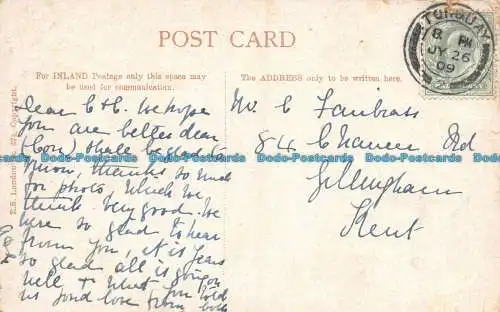 POST CARD
TORQUAY
8 PM
JY 26
09
For INLAND Postage only this space may
be used for communication.
The ADDRESS only to be written here.
E.S. London
Copyright.
Dear C & C. We hope
you are better dear
(Con) shall be glad to
know, thanks so much
for photo, which we
think very good. We
were so glad to hear
from you, it is years
so glad all is going on
well & what you told
us fond love from both
Mr C Fairbrass
84 Chaucer Rd
Gillingham
Kent
Dodo-Postcards Dodo-Postcards Dodo-Postcards Dodo-Postcards